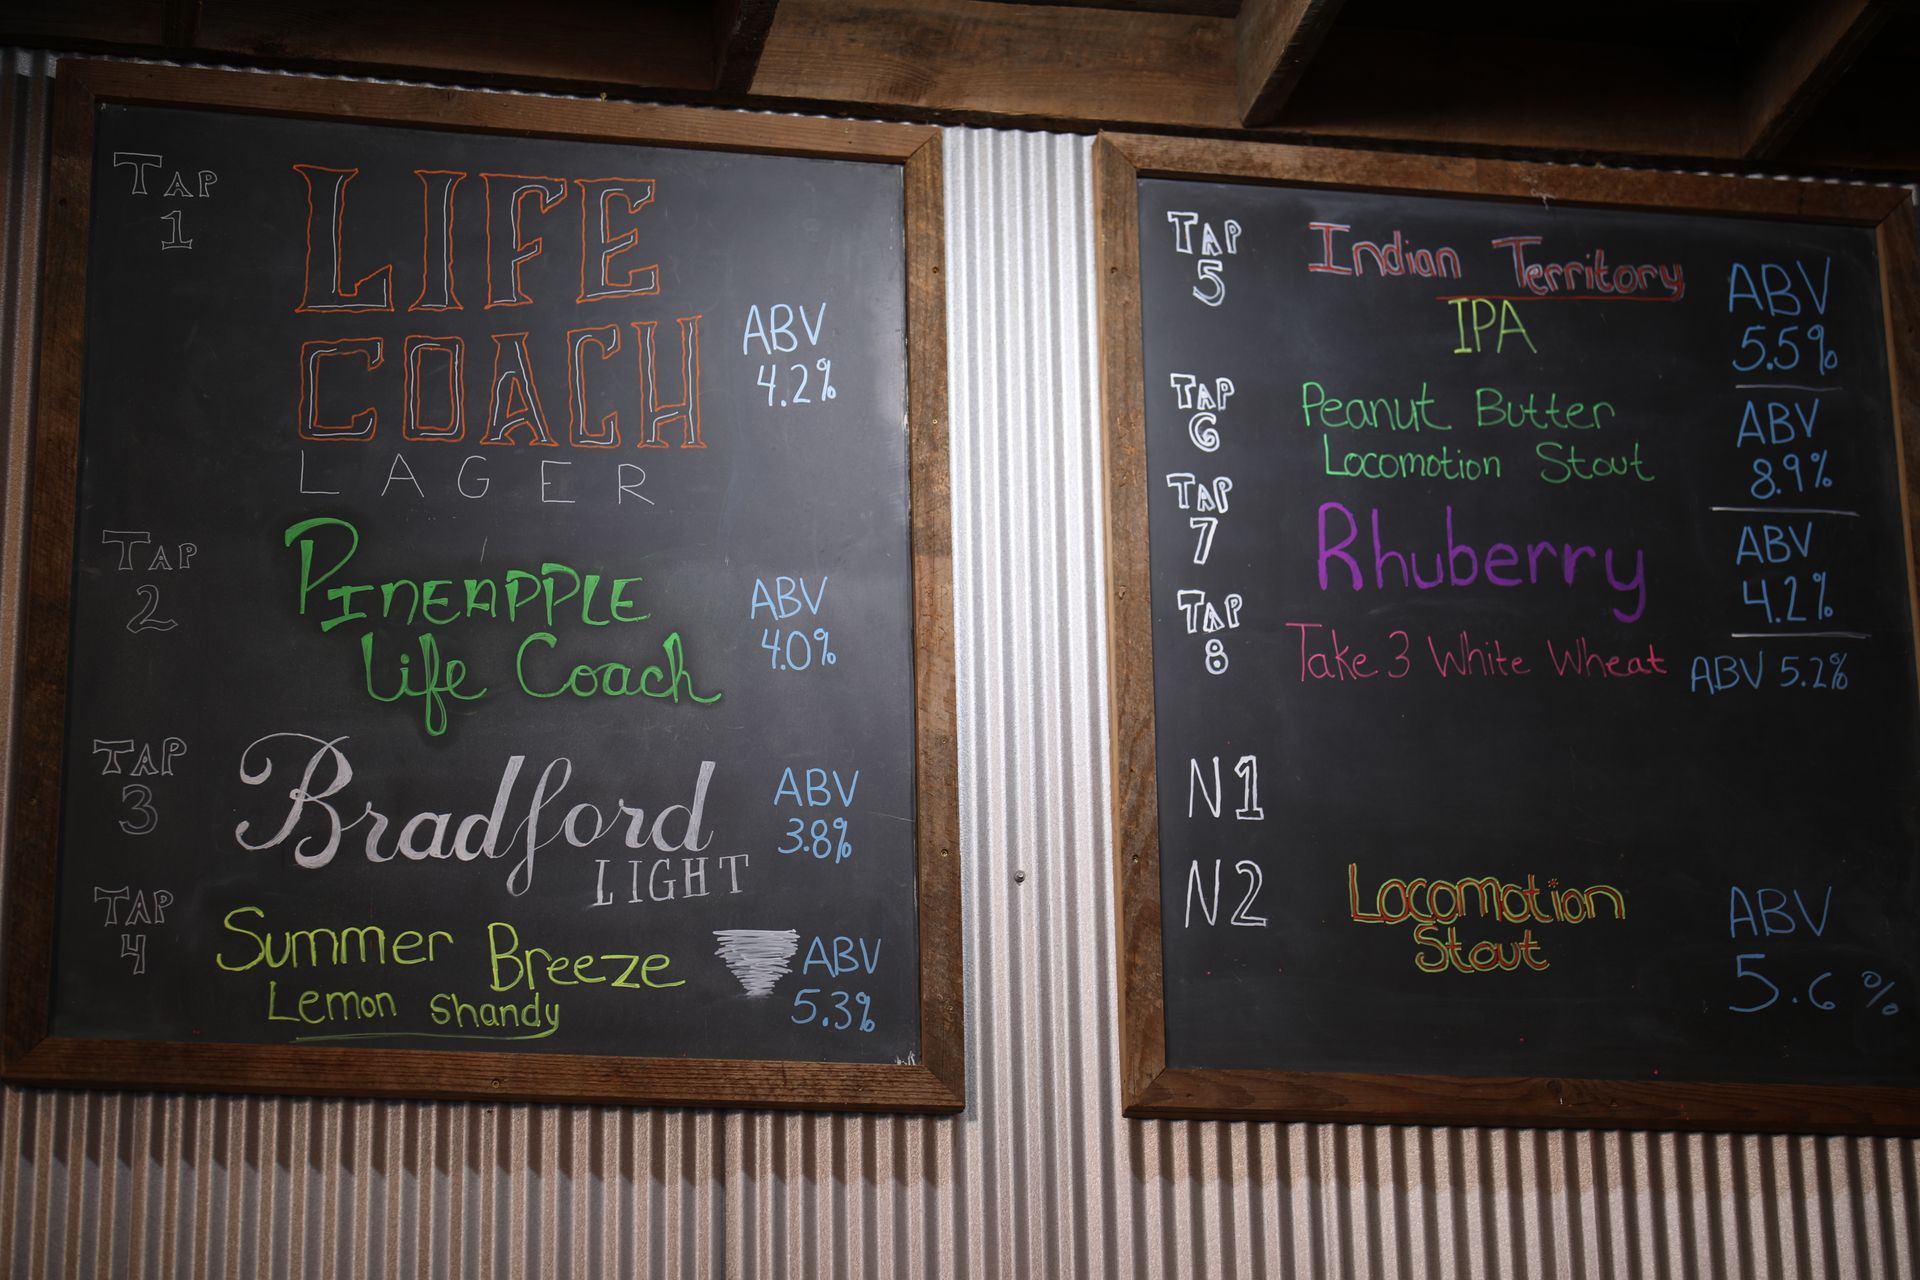 TAP
1
LIFE
COACH
LAGER
ABV
4.2%
TAP
2
PINEAPPLE
Life Coach
ABV
4.0%
TAP
3
Bradford
LIGHT
ABV
3.8%
TAP
4
Summer Breeze
Lemon Shandy
ABV
5.3%
TAP
5
Indian Territory
IPA
ABV
5.5%
TAP
6
Peanut Butter
Locomotion Stout
ABV
8.9%
TAP
7
Rhuberry
ABV
4.2%
TAP
8
Take 3 White Wheat
ABV 5.2%
N1
N2
Locomotion
Stout
ABV
5.6%